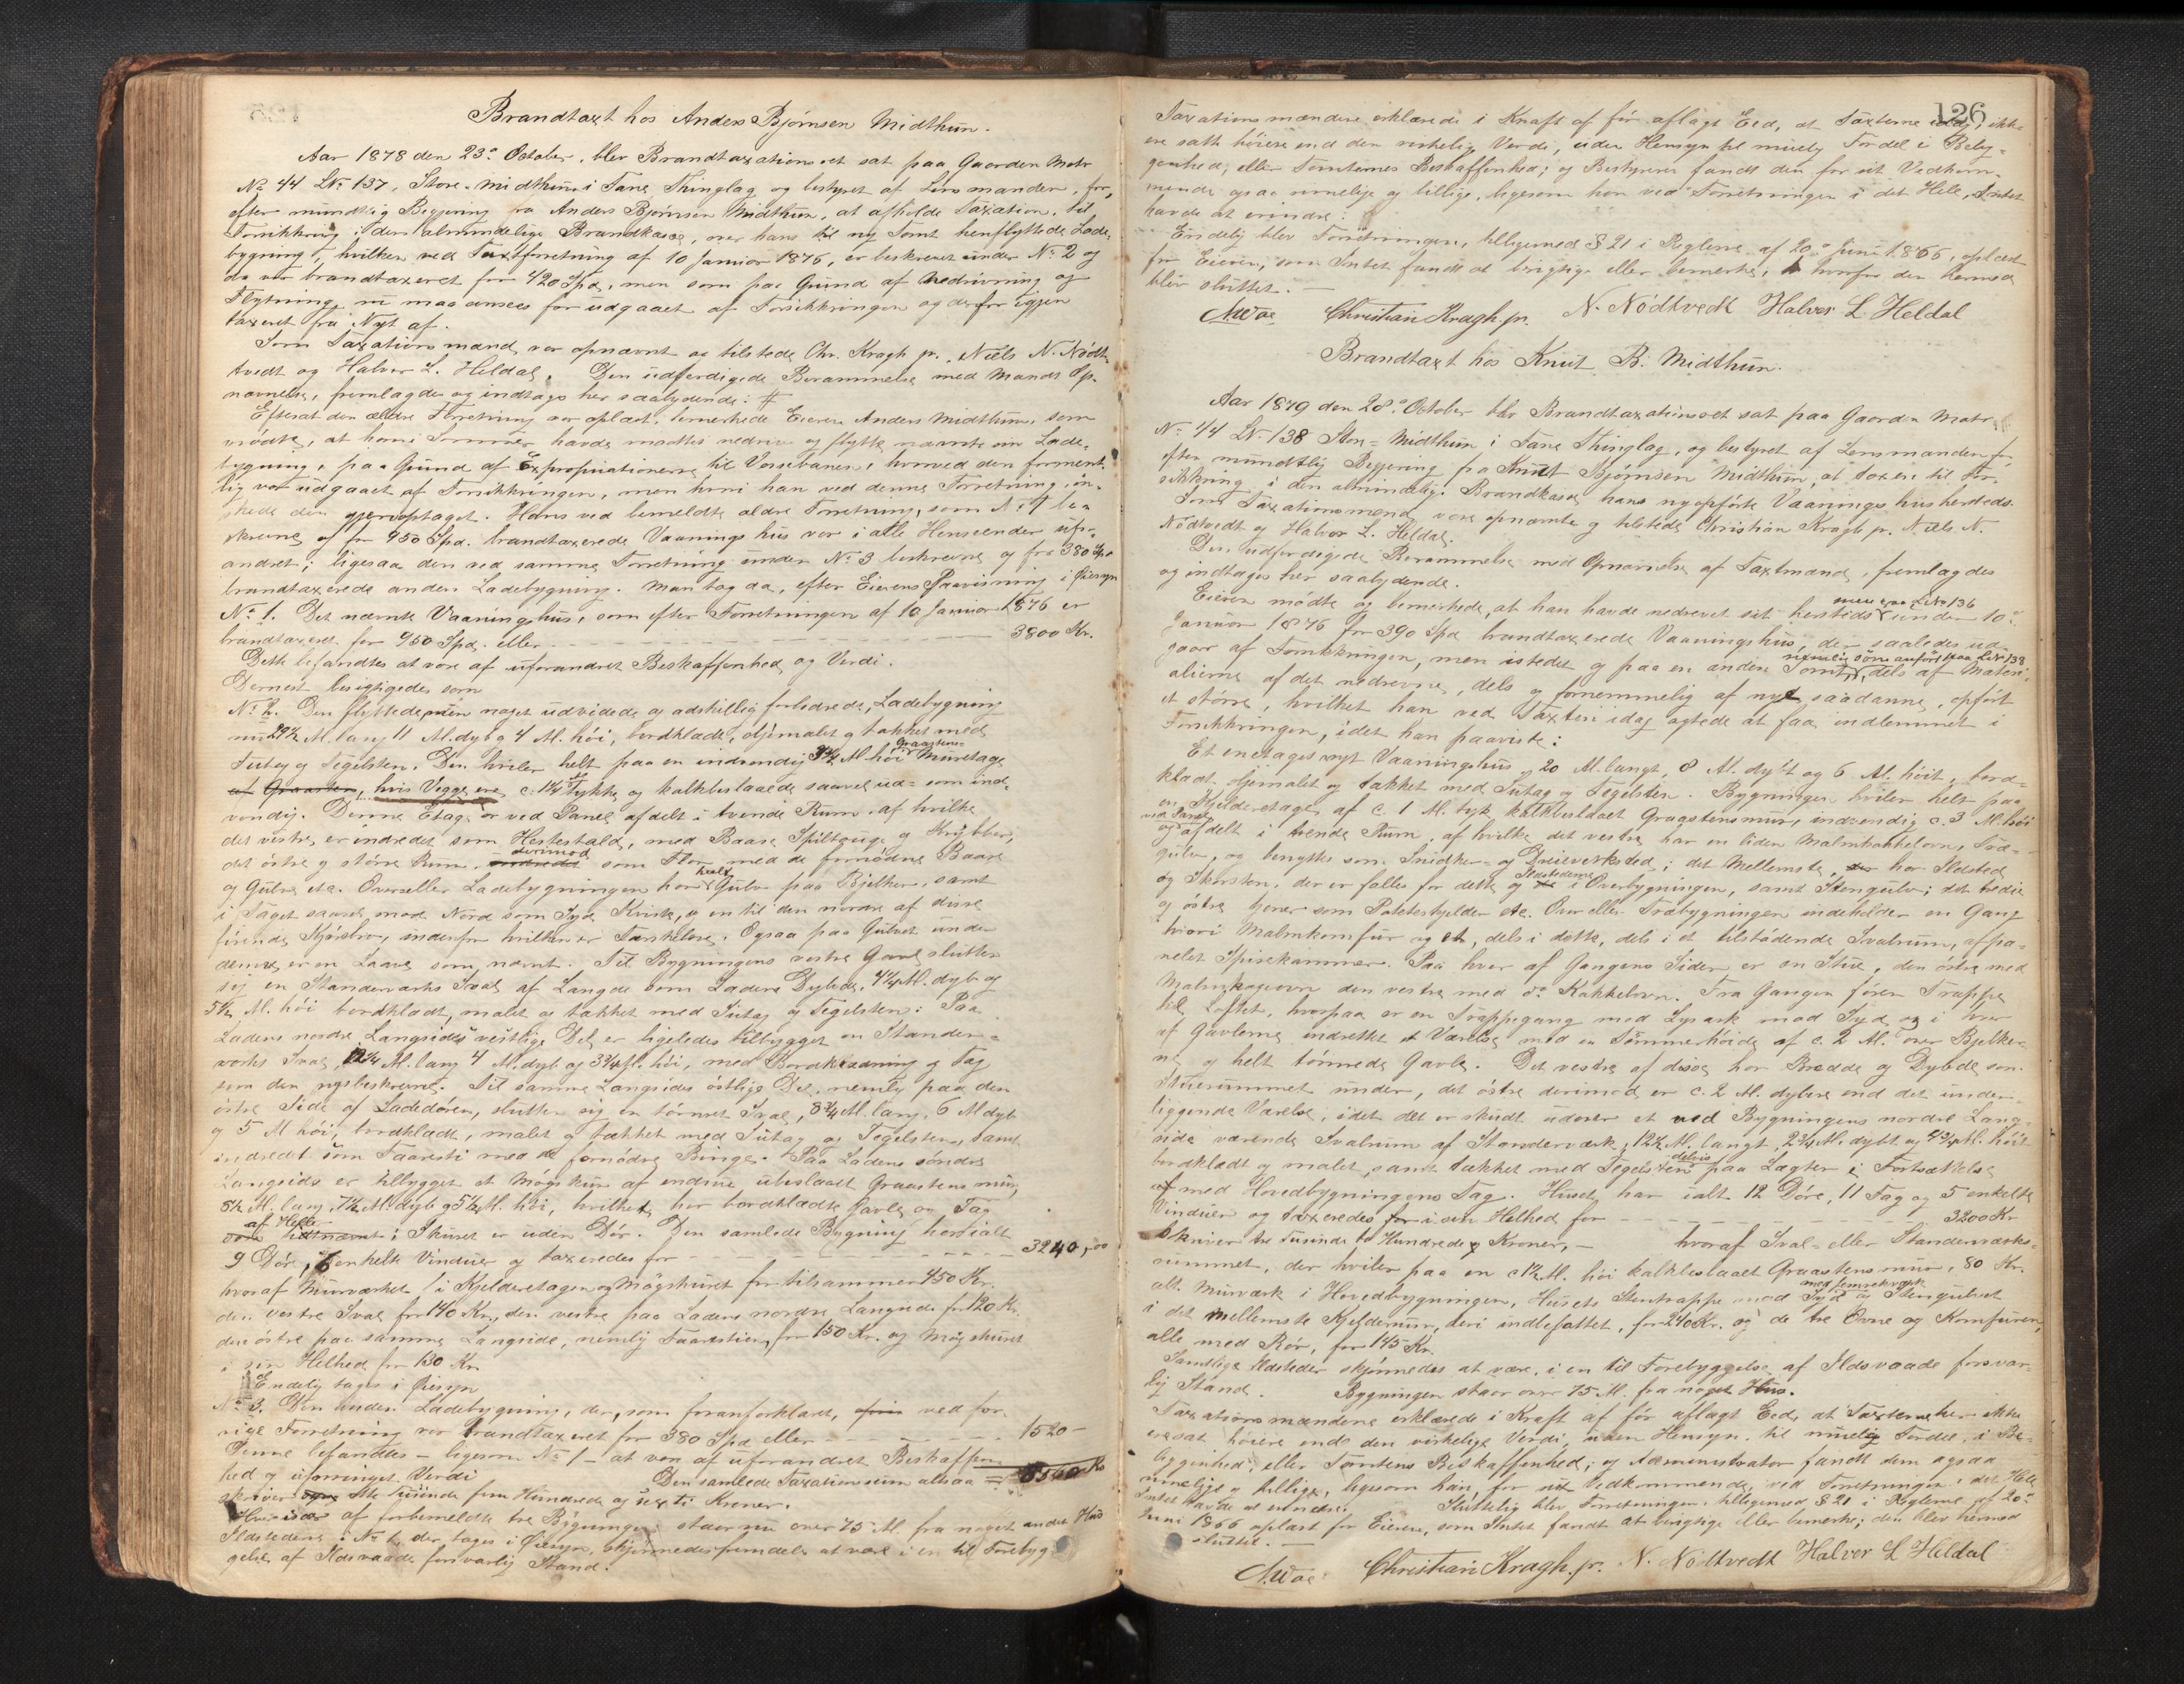 Brandtaxt hos Anders Bjørnsen Midthun.
Aar 1878 den 23de October, blev Brandtaxationsret sat paa Gaarden Matr
No 44 LNr 137, Store-Midthun i Fane Thinglag og bestyret af Lensmanden, for,
efter mundtlig Begjering fra Anders Bjørnsen Midthun, at afholde Taxation, til
Forsikkring i den almindelige Brandkasse, over hans til ny Tomt henflyttede Lade-
bygning, hvilken ved Taxtforretning af 10 Januar 1876, er beskrevet under No 2 og
da var brandtaxeret for 420 Spd, men som paa Grund af Nedrivning og
Flytning nu maa ansees for udgaaet af Forsikkringen og derfor igjen
taxeret fra Nyt af.
Som Taxationsmænd var opnævnt og tilstede Chr. Kragh jr., Niels N. Nødt-
tvedt og Halvor L. Heldal. Den udferdigede Berammelse med Mands Op-
nævnelse, fremlagdes og indtages her saalydende: #
Efterat den ældre Forretning var oplæst, bemerkede Eieren Anders Midthun, som
mødte, at han i Sommer havde maattet nedrive og flytte nævnte sin Lade-
bygning, paa Grund af Expropriationerne til Vossebanen, hvorved den forment-
lig var udgaaet af Forsikkringen, men hvori han ved denne Forretning, øn-
skede den gjenoptaget. Hans ved bemeldte ældre Forretning, som No 1 be-
skrevne og for 950 Spd. brandtaxerede Vaaningshus var i alle Henseender ufor-
andret; ligesaa den ved samme Forretning under No 3 beskrevne og for 380 Spd
brandtaxerede anden Ladebygning. Man tog da, efter Eierens Paavisning i Øiesyn
No 1. Det nævnte Vaaningshus, som efter Forretningen af 10 Januar 1876 er
brandtaxeret for 950 Spd. eller - - - 3800 Kr.
Dette befandtes at være af uforandret Beskaffenhed og Verdi.
Dernest besigtigedes som
No 2. Den flyttede, nu noget udvidede og adskillig forbedrede, Ladebygning
nu 29½ Al. lang 11 Al. dyb og 4 Al. høi, bordklædt, oljemalet og tækket med
Sutag og Tegelsten. Den hviler helt paa en indvendig 3¼ Al høi Graastens- Muretage
af Graasten, hvis Vegge ere c. 1¼ Al tykke og kalkbeslaaede saavel ud- som ind-
vendig. Denne Etage er ved Panel afdelt i tvende Rum, af hvilke
det vestre er indredet som Hestestald, med Baase Spiltauge og Krybber,
det østre og større Rum derimod som Flor med de fornødne Baase
og Gulve etc. Over eller Ladebygningen har helt Gulv paa Bjelker, samt
i Taget saavel mod Nord som Syd Kviste, og en til den nordre af disse
førende Kjørebro, indenfor hvilken er Tærskelove. Ogsaa paa Gulvet under
denne er en Laave som nævnt. Til Bygningens vestre Gavl slutter
sig en Standerværks Sval af Længde som Ladens Dybde, 4¼ Al. dyb og
5½ Al. høi bordklædt, malet og tækket med Sutag og Tegelsten. Paa
Ladens nordre Langsides vestlige Del er ligeledes tilbygget en Stander-
værks Sval, 12¼ Al. lang 4 Al. dyb og 3¾ Al. høi, med Bordklædning og Tag
som den nysbeskrevne. Til samme Langsides østlige Del, nemlig paa den
østre Side af Ladedøren, slutter sig en tømret Sval, 8¾ Al. lang, 6 Al dyb
og 5 Al høi, bordklædt, malet og tækket med Sutag og Tegelsten, samt
indredt som Faaresti med de fornødne Binge. Paa Ladens søndre
Langside er tilbygget et Møgskur af endnu ubeslaaet Graastens mur,
8½ Al. lang, 7½ Al. dyb og 5½ Al. høi, hvilket har bordklædte Gavle og Tag
af Heller i Skuret er uden Dør. Den samlede Bygning har ialt
9 Døre, 6 enkelte Vinduer og taxeredes for - - - 3240,00
hvoraf Murværket i Kjelderetagen og Møgskuret for tilsammen 450 Kr.
den vestre Sval for 140 Kr, den vestre paa Ladens nordre Langside for 120 Kr.
den østre paa samme Langside, nemlig Faarestien, for 150 Kr. og Møgskuret
i sin Helhed for 130 Kr.
Endelig toges i Øiesyn
No 3. Den anden Ladebygning, der, som foranforklaret, ved for-
rige Forretning var brandtaxeret for 380 Spd eller - - - 1520 -
Denne befandtes - ligesom No 1 - at være af uforandret Beskaffen-
hed og uforringet Verdi Den samlede Taxationssum altsaa = 8560 Kr
skriver Otte Tusinde fem Hundrede og sexti Kroner.
Hver især af forbemeldte tre Bygninger staar nu over 75 Al. fra noget andet Hus
Ildstederne i No 1, der toges i Øiesyn, skjønnedes fremdeles at være i en til Forebyg-
gelse af Ildsvaade forsvarlig Stand.
126
Taxationsmændene erklærede i Kraft af før aflagt Eed, at Taxterne idag, ikke
ere satte høiere end den virkelig Verdi, uden Hensyn til muelig Fordel i Beliggenhed, eller Tomternes Beskaffenhed; og Bestyreren fandt den for sit Vedkom-
mende ogsaa rimelige og billige, ligesom han ved Forretningen i det Hele, Intet
havde at erindre.
Endelig blev Forretningen, tilligemed § 21 i Reglerne af 20de Juni 1866, oplæst
for Eieren, som Intet fandt at berigtige eller bemerke, hvorfor den hermed
blev sluttet.
Christian Kragh jr. N. Nödtvedt Halver L Heldal
Brandtaxt hos Knut B. Midthun.
Aar 1879 den 28de October blev Brandtaxationsret sat paa Gaarden Matr.
No 44 LNr 138 Store-Midthun i Fane Thinglag, og bestyret af Lensmanden for
efter mundtlig Begjering fra Knut Bjørnsen Midthun, at taxere til For-
sikkring i den almindelige Brandkasse, hans nyopførte Vaaningshus hersteds.
Som Taxationsmænd vare opnævnte og tilstede Christian Kragh jr. Niels N.
Nødtvedt og Halvor L. Heldal.
Den udferdigede Berammelse med Opnævnelse af Taxtmænd, fremlagdes
og indtages her saalydende.
Eieren mødte og bemerkede, at han havde nedrevet sit herstedsmen paa LNo 136 under 10de
Januar 1876 for 390 Spd brandtaxerede Vaaningshus, der saaledes ud-
gaar af Forsikkringen, men istedet og paa en anden Tomt, nemlig som anført paa LNr 138, dels af Materi-
alierne af det nedrevne, dels og fornemmelig af nye saadanne, opført
et større, hvilket han ved Taxten idag agtede at faa indlemmet i
Forsikkringen, idet han paaviste:
Et enetages nyt Vaaningshus, 20 Al. langt, 8 Al. dybt og 6 Al. høit, bord-
klædt, oljemalet og tækket med Sutag og Tegelsten. Bygningen hviler helt paa
en Kjelderetage, af c. 1 Al. tyk kalkbeslaaet Graastensmur, indvendig c. 3 Al. høi
og ved Panel afdelt i trende Rum, af hvilke det vestre har en liden Malmkakkelovn, Jord-
gulv, og benyttes som Snidker- og Dreieverksted; det Mellemste, har Ildsted
og Skorsten, der er fælles for dette og Ildstederne i Overbygningen, samt Stengulv; det tredie
og østre tjener som Poteteskjelder etc. Over eller Træbygningen indeholder en Gang
hvori Malmkomfur og et, dels i dette, dels i et tilstødende Svalrum, afpa-
nelet Spisekammer. Paa hver af Gangens Sider er en Stue, den østre med
Malmkogeovn den vestre med do Kakkelovn. Fra Gangen fører Trappe
til Loftet, hvorpaa er en Trappegang med Lysark mod Syd og i hver
af Gavlerne indrettet et Værelse med en Tømmerhøide af c. 2 Al. over Bjelker-
ne og helt tømrede Gavle. Det vestre af disse har Bredde og Dybde som
Stuerummet under, det østre derimod er c. 2 Al. dybere end det under-
liggende Værelse, idet det er skudt udover et ved Bygningens nordre Lang-
side værende Svalrum af Standerværk, 12½ Al. langt, 2¾ Al. dybt og 4¾ Al. høit
bordklædt og malet, samt tækket med Tegelsten delvis paa Lægter i Fortsættelse
med Hovedbygningens Tag. Huset har ialt 12 Døre, 11 Fag og 5 enkelte
Vinduer og taxeredes i sin Helhed for - - - 3200 Kr
skriver tre Tusinde to Hundrede Kroner, - hvoraf Sval- eller Standerværks-
rummet, der hviler paa en c 1½ Al. høi kalkbeslaaet Graastensmur, 80 Kr.
alt Murværk i Hovedbygningen, Husets Stentrappe mod Syd og Stengulvet
i det mellemste Kjelderrum, deri indbefattet, for 240 Kr. og de tre Ovne og Komfuren,
alle med Rør, for 145 Kr.
Samtlige Ildsteder skjønnedes at være, i en til Forebyggelse af Ildsvaade forsvar-
lig Stand. Bygningen staar over 75 Al. fra noget Hus.
Taxationsmændene erklærede i Kraft af før aflagt Eed, at Taxterne her ikke
ere sat høiere end den virkelige Verdi, uden Hensyn til muelig Fordel, i Be-
liggenhed, eller Tomtens Beskaffenhed; og Administrator fandt dem ogsaa
rimelige og billige, ligesom han, for sit Vedkommende, ved Forretningen i det Hele
Intet havde at erindre. Sluttelig blev Forretningen, tilligemed § 21 i Reglerne af 20de
Juni 1866 oplæst for Eieren, som Intet fandt at berigtige eller bemerke; den blev hermed
sluttet.
Christian Kragh jr. N. Nödtvedt Halver L Heldal